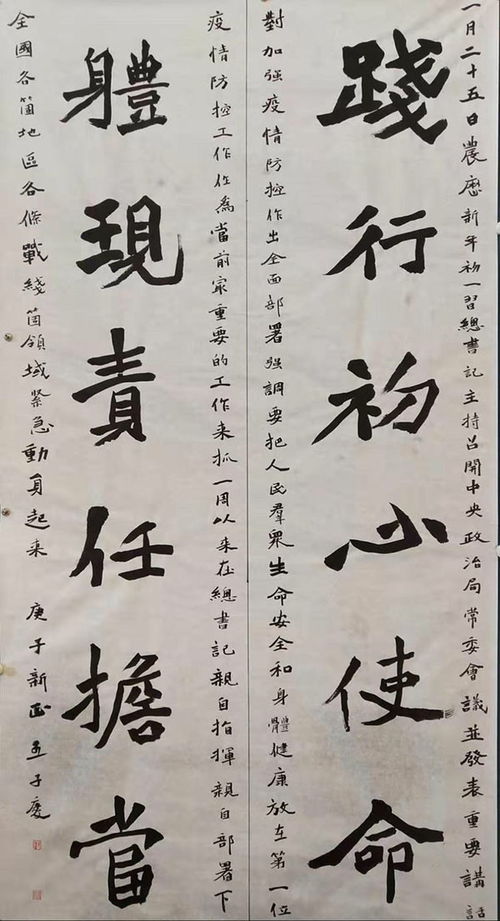 一月二十五日農曆新年初一習總書記主持召開中央政治局常委會議並發表重要講話
踐行初心使命
對加强疫情防控作出全面部署强調要把人民羣衆生命安全和身體健康放在第一位
疫情防控工作作爲當前最重要的工作來抓一周以來在總書記親自指揮親自部署下
體現責任擔當
全國各箇地區各條戰綫箇領域緊急動員起來 庚子新正 子慶